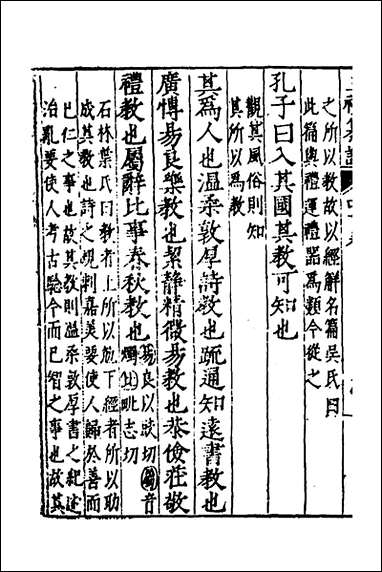 之所以教故以經解名篇吳氏曰
此篇與禮運禮器為類今從之
孔子曰入其國其教可知也
觀其風俗則知
其所以為教
其為人也溫柔敦厚詩教也疏通知遠書教也
廣博易良樂教也絜靜精微易教也恭儉莊敬
禮教也屬辭比事春秋教也
易良以豉切
屬音
燭比毗志切
石林葉氏曰教者上所以施下經者所以助
成其教也詩之規刺嘉美要使人歸於善而
已仁之事也故其教則溫柔敦厚書之紀述
治亂要使人考古驗今而已智之事也故其